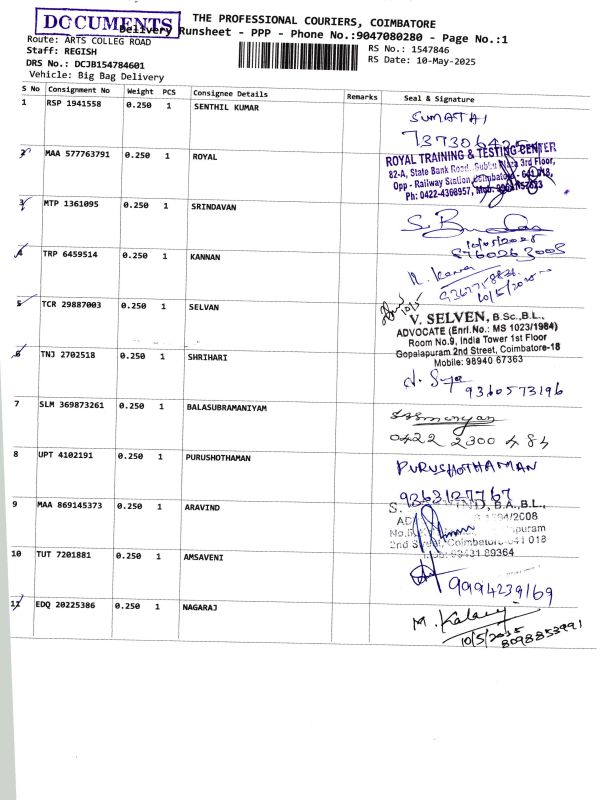 DOCUMENTS
THE PROFESSIONAL COURIERS, COIMBATORE
Delivery Runsheet - PPP - Phone No.:9047080280 - Page No.:1
Route: ARTS COLLEG ROAD
RS No.: 1547846
Staff: REGISH
RS Date: 10-May-2025
DRS No.: DCJB154784601
Vehicle: Big Bag Delivery
S No Consignment No Weight PCS Consignee Details Remarks Seal & Signature
1 RSP 1941558 0.250 1 SENTHIL KUMAR
SUMATHI
2 MAA 577763791 0.250 1 ROYAL
ROYAL TRAINING & TESTING CENTER
82-A, State Bank Road, 3rd Floor,
Opp - Railway Station, Coimbatore - 641 018,
Ph: 0422-4368957, Mob:
3 MTP 1361095 0.250 1 SRINDAVAN
10/05/2025
8760263005
4 TRP 6459514 0.250 1 KANNAN
10/5/2025
5 TCR 29887003 0.250 1 SELVAN
10/5
V. SELVEN, B.Sc.,B.L.,
ADVOCATE (Enrl.No.: MS 1023/1984)
Room No.9, India Tower 1st Floor
Gopalapuram 2nd Street, Coimbatore-18
Mobile: 98940 67363
6 TNJ 2702518 0.250 1 SHRIHARI
9360573196
7 SLM 369873261 0.250 1 BALASUBRAMANIYAM
0422 2300 484
8 UPT 4102191 0.250 1 PURUSHOTHAMAN
PURUSHOTHAMAN
9363127767
9 MAA 869145373 0.250 1 ARAVIND
B.A.,B.L.,
2nd Street, Coimbatore-641 018
10 TUT 7201881 0.250 1 AMSAVENI
9994239169
11 EDQ 20225386 0.250 1 NAGARAJ
10/5/2025
8098853991